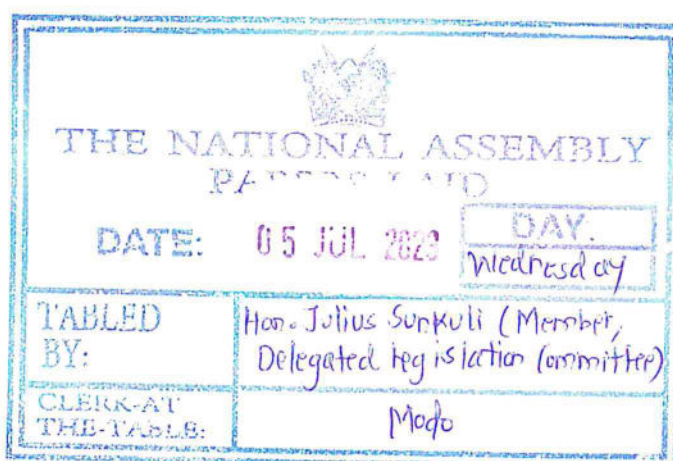 THE NATIONAL ASSEMBLY
PAPERS LAID
DATE: 05 JUL 2023
DAY.
Wednesday
TABLED BY:
Hon. Julius Sunkuli (Member,
Delegated legislation Committee)
CLERK-AT
THE-TABLE:
Modo